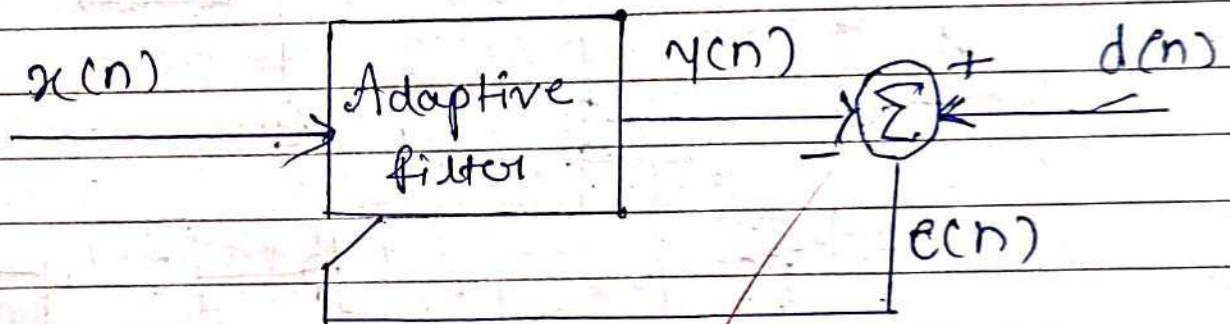 x(n)
Adaptive
filter
y(n)
+
d(n)
Σ
-
e(n)